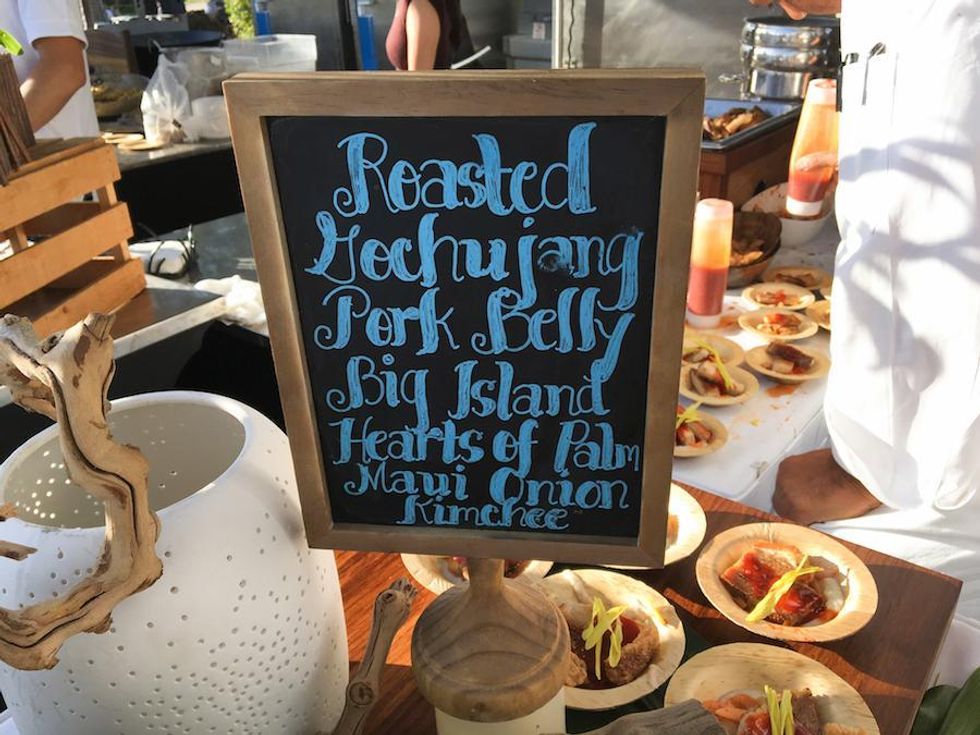 Roasted
Gochujang
Pork Belly
Big Island
Hearts of Palm
Maui Onion
Kimchee